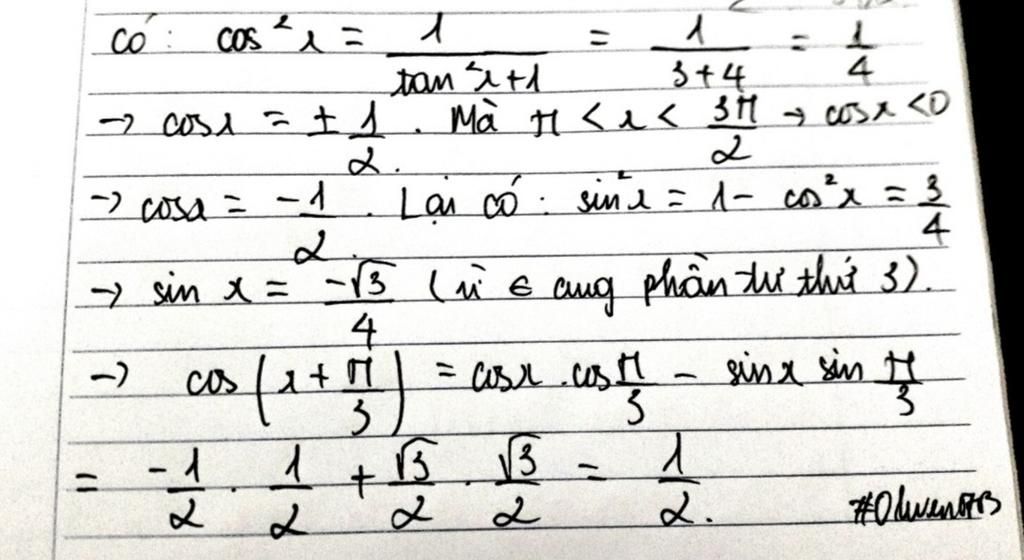 có: cos²x = 1/(tan²x+1) = 1/(3+4) = 1/4
→ cosx = ± 1/2. Mà π < x < 3π/2 → cosx < 0
→ cosx = -1/2. Lại có: sin²x = 1 - cos²x = 3/4
→ sin x = -√3/4 (vì ∈ cung phần tư thứ 3).
→ cos(x + π/3) = cosx . cos π/3 - sinx sin π/3
= -1/2 . 1/2 + √3/2 . √3/2 = 1/2.